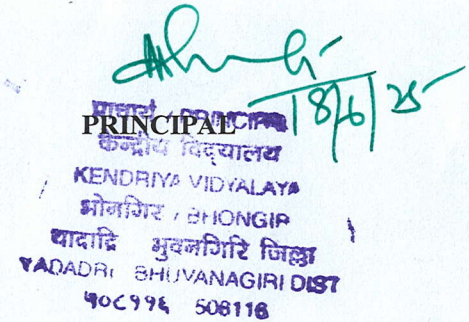 18/6/25
प्राचार्य / PRINCIPAL
PRINCIPAL
केन्द्रीय विद्यालय
KENDRIYA VIDYALAYA
भोनगिर / BHONGIR
यादाद्रि भुवनगिरि जिल्ला
YADADRI BHUVANAGIRI DIST
५०८११६ 508116